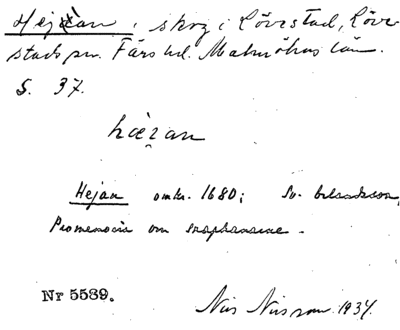 Hejan, skog i Lövestad, Löve-
stads sn. Färs hd. Malmöhus län.
S. 37.
hæjan
Hejan omkr. 1680; Sv.
Promemoria om snaphanarne.
Nr 5589.
Nils Nilsson. 1934.